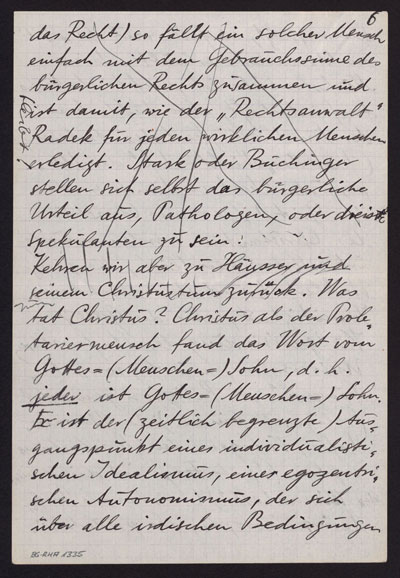 6
das Recht) so fällt ein solcher Mensch
einfach mit dem Gebrauchssinne des
bürgerlichen Rechts zusammen und
ist damit, wie der „Rechtsanwalt"
Radek für jeden wirklichen Menschen
erledigt. Stark oder Buchinger
stellen sich selbst das bürgerliche
Urteil aus, Pathologen, oder dreiste
Spekulanten zu sein.
Kehren wir aber zu Häusser und
seinem Christustum zurück. Was
tat Christus? Christus als der Prole
tariermensch fand das Wort vom
Gottes=(Menschen=) Sohn, d. h.
jeder ist Gottes=(Menschen=) Sohn.
Er ist der (zeitlich begrenzte) Aus,
gangspunkt eines individualisti,
schen Idealismus, eines egozentri,
schen Autonomismus, der sich
über alle irdischen Bedingungen
BG-RHA 1335